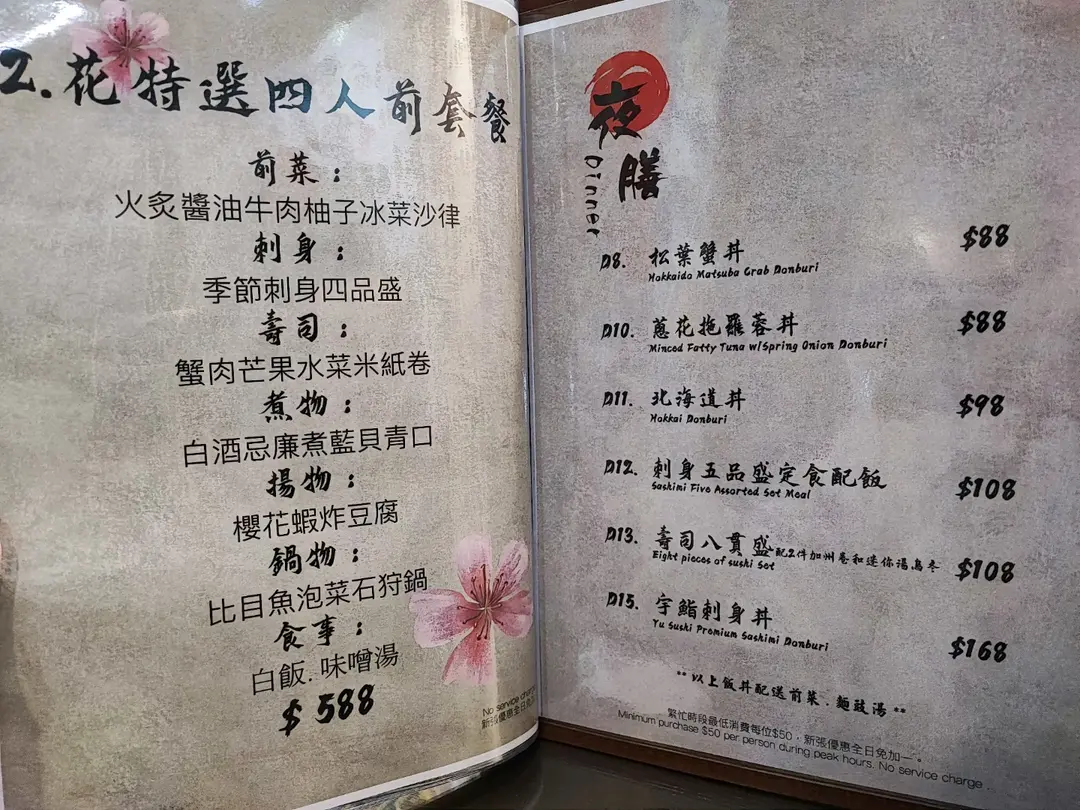 2.花特選四人前套餐
前菜：
火炙醬油牛肉柚子冰菜沙律
刺身：
季節刺身四品盛
壽司：
蟹肉芒果水菜米紙卷
煮物：
白酒忌廉煮藍貝青口
揚物：
櫻花蝦炸豆腐
鍋物：
比目魚泡菜石狩鍋
食事：
白飯.味噌湯
$588
No service charge
新張優惠全日免加
夜膳
Dinner
D8. 松葉蟹丼 $88
Hokkaido Matsuba Crab Donburi
D10. 蔥花拖羅蓉丼 $88
Minced Fatty Tuna w/Spring Onion Donburi
D11. 北海道丼 $98
Hokkai Donburi
D12. 刺身五品盛定食配飯 $108
Sashimi Five Assorted Set Meal
D13. 壽司八貫盛 配2件加州卷和迷你湯烏冬 $108
Eight pieces of sushi Set
D15. 宇鮨刺身丼 $168
Yu Sushi Premium Sashimi Donburi
** 以上飯丼配送前菜.麵豉湯 **
繁忙時段最低消費每位$50，新張優惠全日免加一。
Minimum purchase $50 per person during peak hours. No service charge .